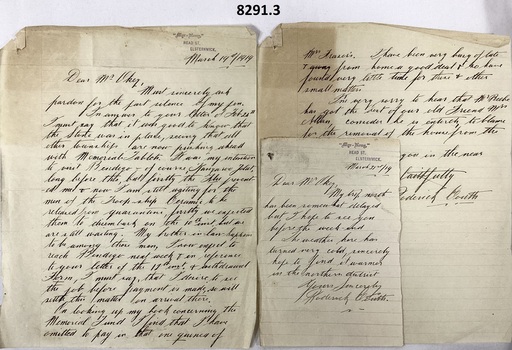 8291.3
HEAD ST.
ELSTERNWICK.
March 14th/1919
Dear Mr Okey,
Must sincerely ask
pardon for the past silence of my pen.
In answer to your letter of Feb 25th
I must say that I feel good to know that
the stone was in place, seeing that all
other townships are now pushing ahead
with Memorial Tablets. It was my intention
to visit Bendigo & of course Kangaroo Flat,
long before this but firstly the
me & now I am still waiting for the
men of the Troop-ship Ceramic to be
released from quarantine, firstly we expected
them to disembark on the 10th inst, but we
are still waiting. My brother-in-law happens
to be among these men, I now expect to
reach Bendigo next week & in reference
to your letter of the 18th inst & withdrawal
Form, I must say, that I desire to see
the job before payment is made, so will
settle this matter on arrival there.
On looking up my book concerning the
Memorial Fund I find that I have
omitted to pay in that one guinea of
Mrs Francis. I have been very busy of late
& away from home a good deal & so have
found very little time for these & other
small matters.
I'm very sorry to hear that Mr
has got the
Allan, consider he is entirely to blame
for the removal of the horse from the
you in the near
Faithfully
HEAD ST.
ELSTERNWICK.
Dear Mr Okey,
My trip north
has been somewhat delayed
but I hope to see you
before the week-end
The weather here has
turned very cold, sincerely
hope to find it warmer
in the northern district
Yours Sincerely